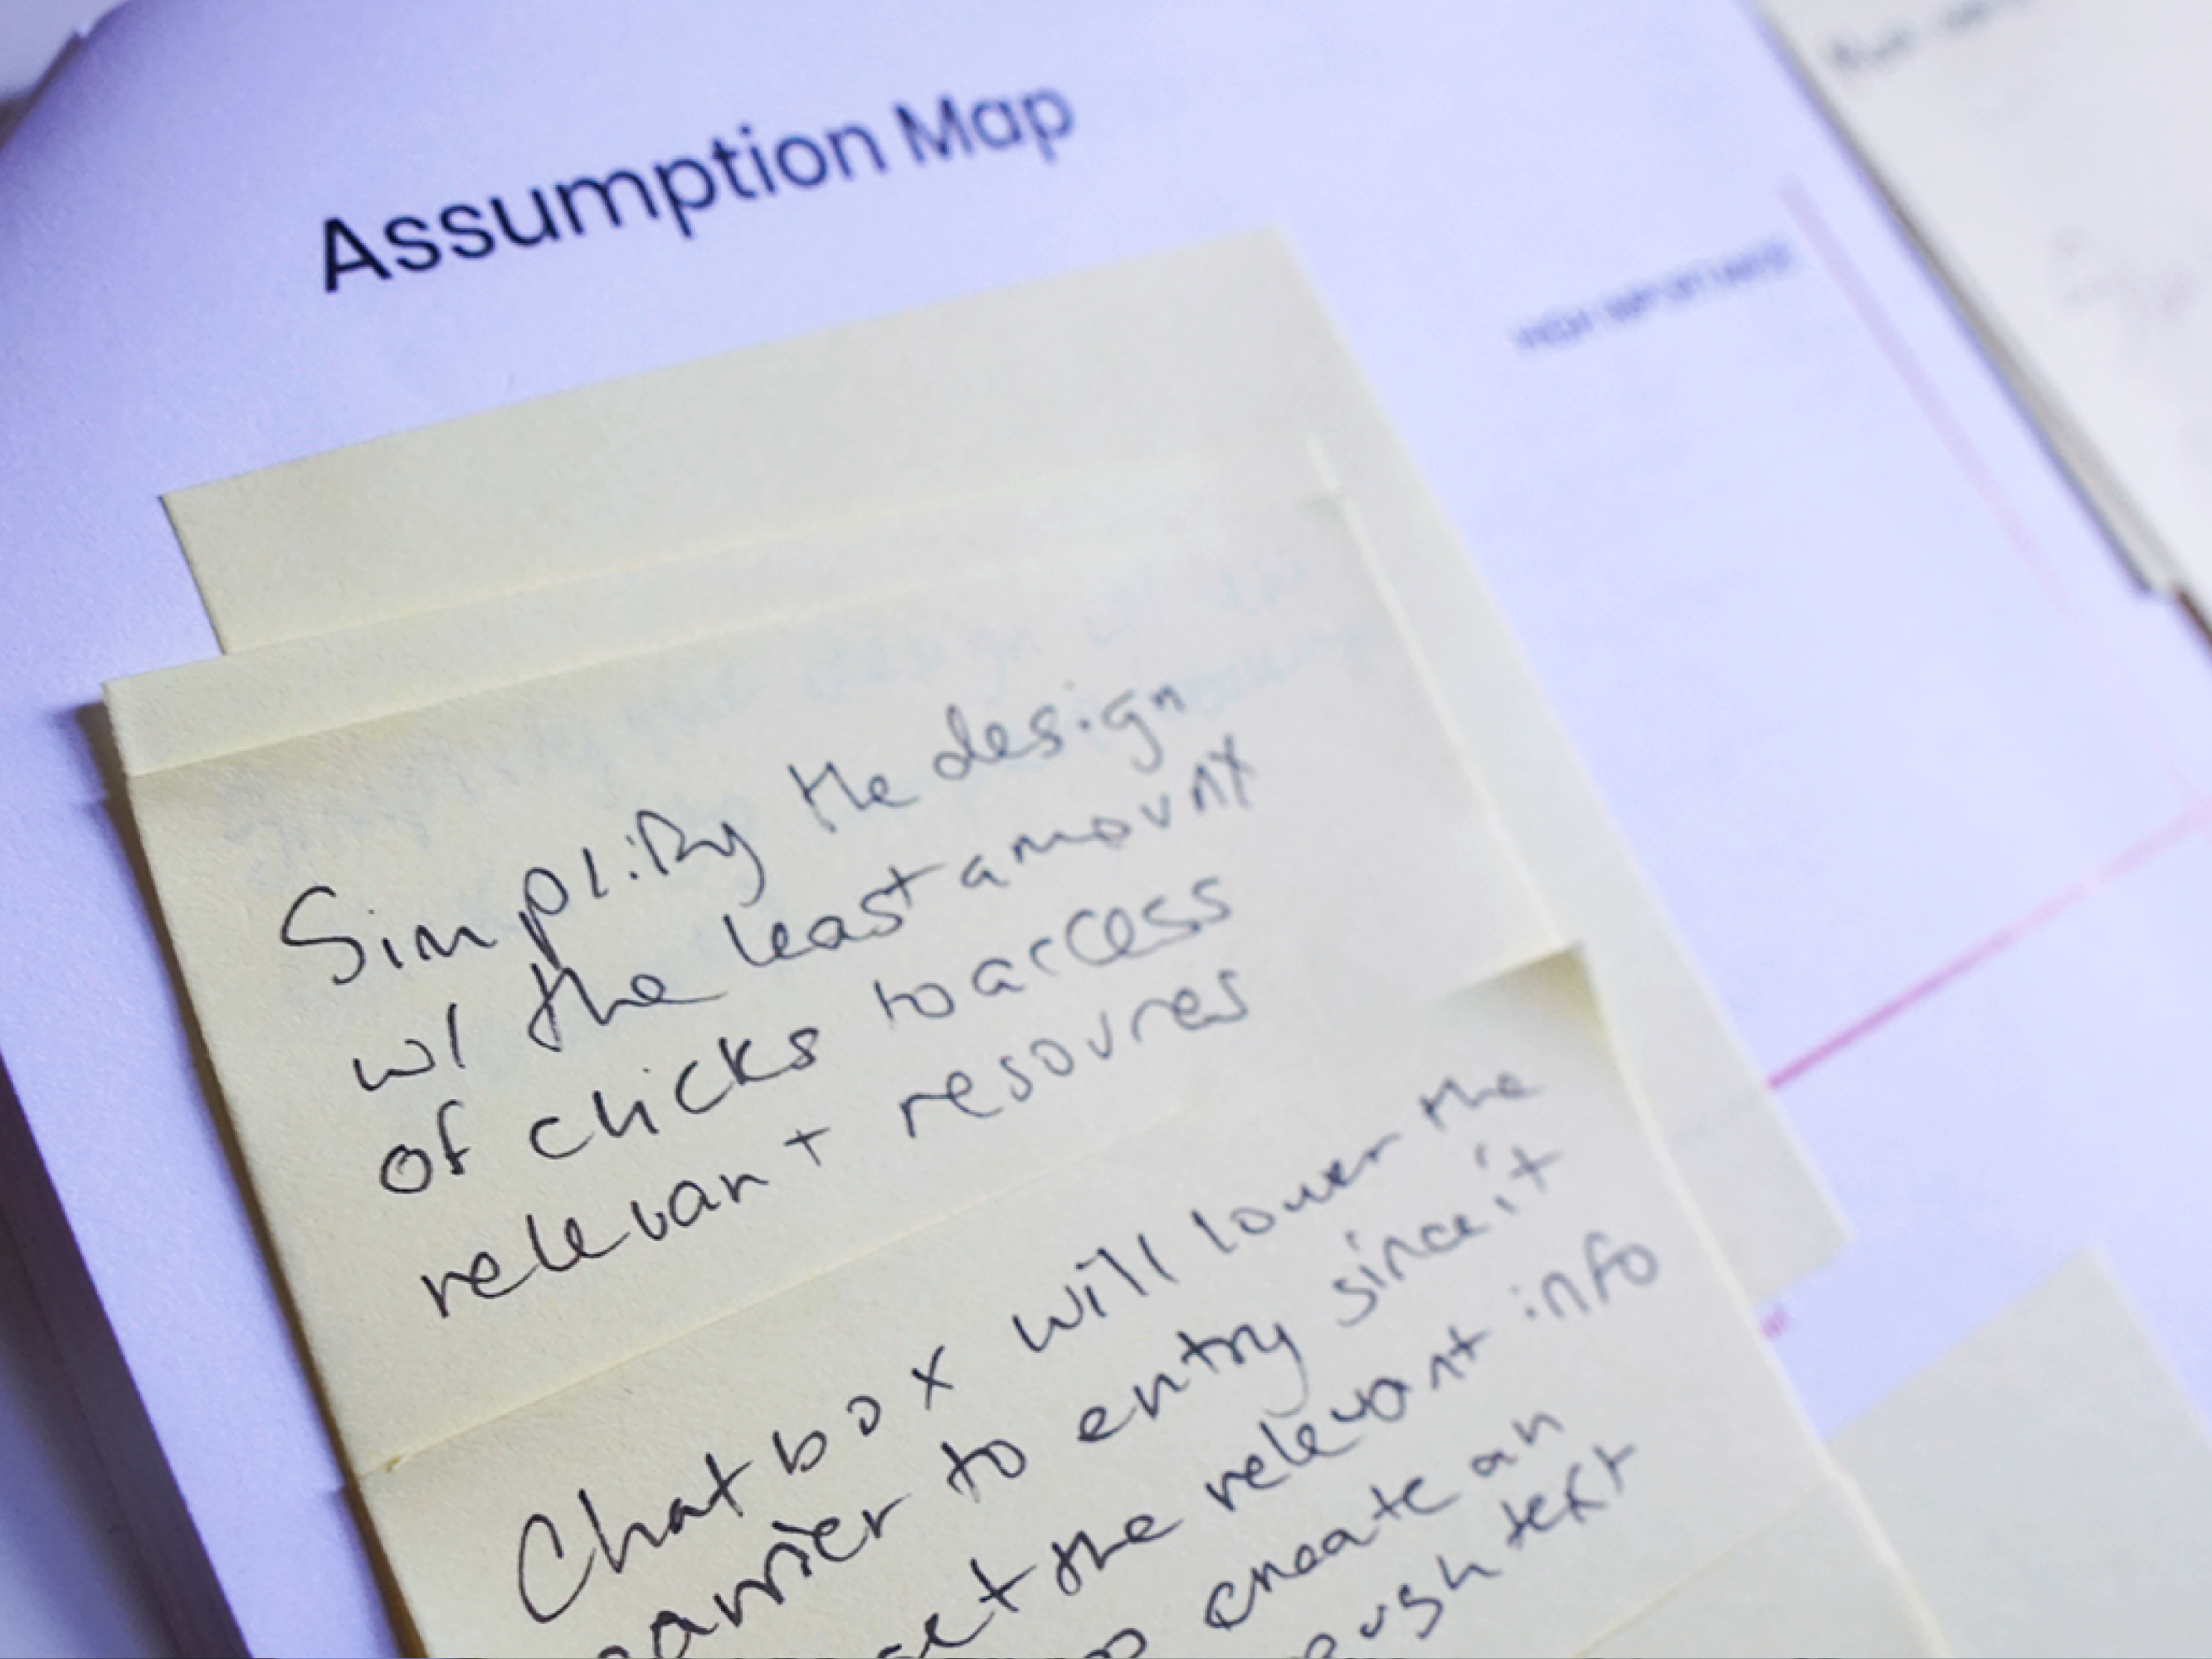 Assumption Map
HIGH IMPORTANCE
Simplify the design
w/ the least amount
of clicks to access
relevant resoures
Chatbox will lower the
barrier to entry since it
get the relevant info
create an
text